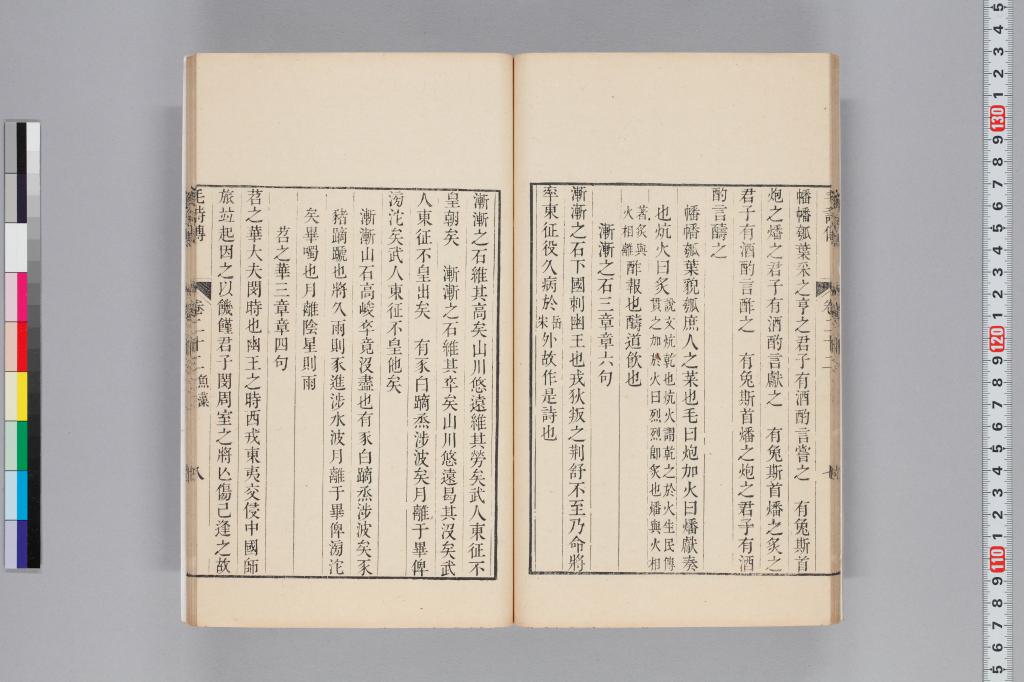 幡幡瓠葉采之亨之君子有酒酌言嘗之　有兔斯首
炮之燔之君子有酒酌言獻之　有兔斯首燔之炙之
君子有酒酌言酢之　有兔斯首燔之炮之君子有酒
酌言醻之
幡幡瓠葉貌瓠庶人之菜也毛曰炮加火曰燔獻奏
也炕火曰炙
說文炕乾也炕火謂乾之於火生民傳
貫之加於火曰烈烈卽炙也燔與火相
著炙與
火相離
酢報也醻道飮也
漸漸之石三章章六句
漸漸之石下國刺幽王也戎狄叛之荆舒不至乃命將
率東征役久病於
外故作是詩也
漸漸之石維其高矣山川悠遠維其勞矣武人東征不
皇朝矣　漸漸之石維其卒矣山川悠遠曷其沒矣武
人東征不皇出矣　有豕白蹢烝涉波矣月離于畢俾
滂沱矣武人東征不皇他矣
漸漸山石高峻卒竟沒盡也有豕白蹢烝涉波矣豕
豬蹢蹏也將久雨則豕進涉水波月離于畢俾滂沱
矣畢噣也月離陰星則雨
苕之華三章章四句
苕之華大夫閔時也幽王之時西戎東夷交侵中國師
旅竝起因之以饑饉君子閔周室之將亾傷己逢之故
毛詩傳
卷二十二
魚藻
八